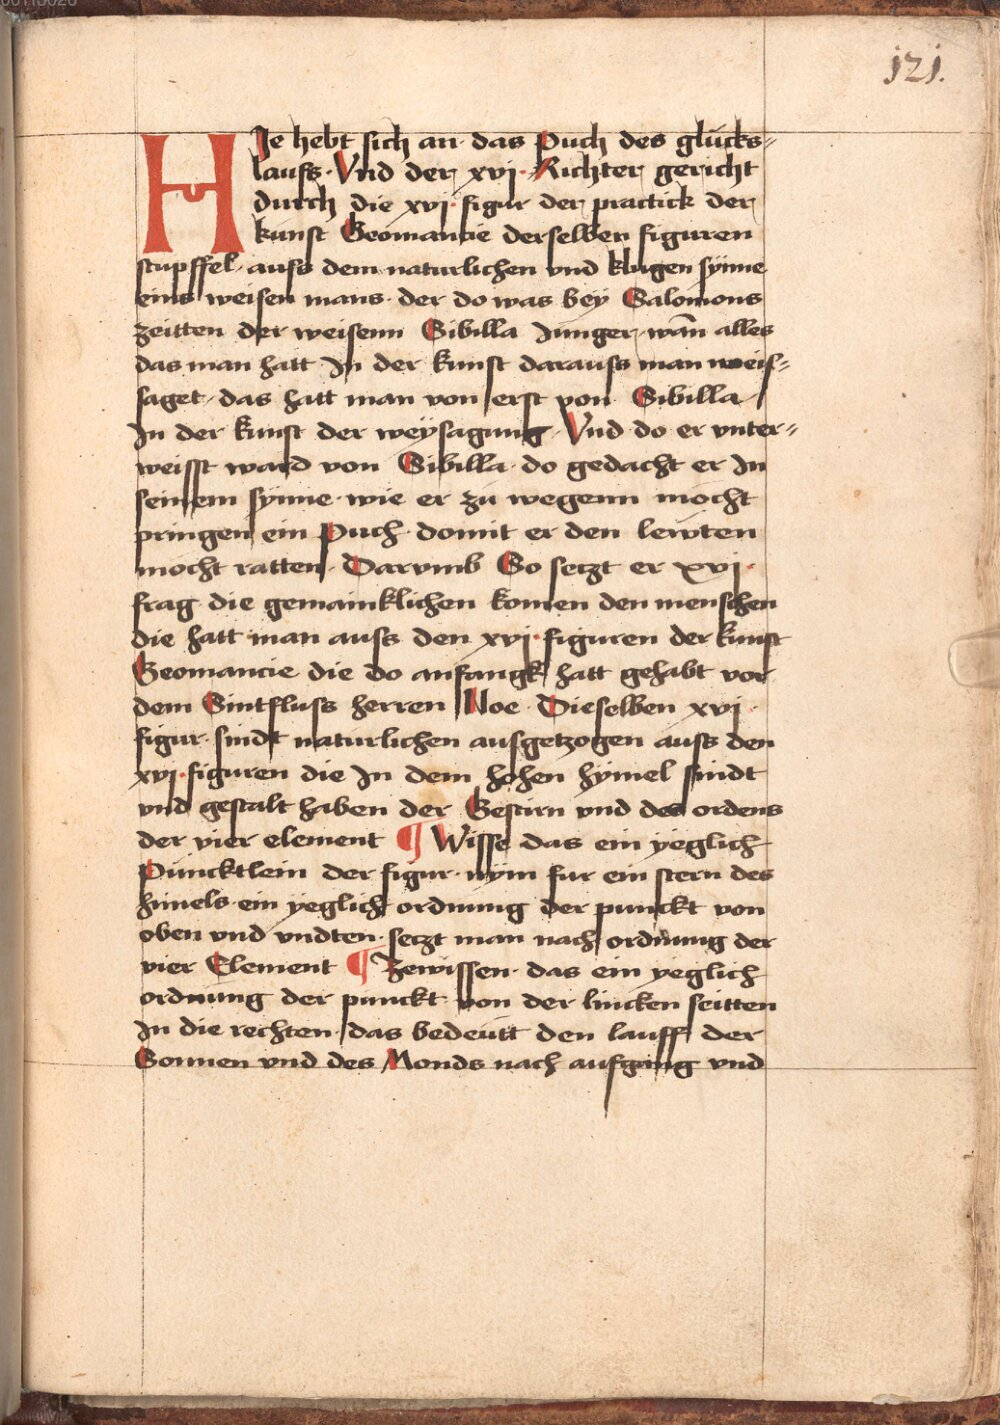 121.
HJe hebt sich an· das Puch des glücks-
lauffs· Vnd der xvj· Richter gericht
durch die xvj· figur der practick der
kunst Geomancie derselben figuren
stupffel· auss dem naturlichen vnd klugen synne
eins weisen mans· der do was bey Salomons
zeitten der weisenn Sibilla Junger· wān alles
das man hatt Jn der kunst darauss man weis-
saget· das hatt man von erst von Sibilla
Jn der kunst der weysagung· Vnd do er vnter-
weisst ward von Sibilla· do gedacht er Jn
seinem synne· wie er zu wegenn möcht
pringen ein Puch· domit er den lewten
möcht ratten· Darvmb So setzt er xvj·
frag· die gemainklichen komen den menschen
die hatt man auss den xvj· figuren der kunst
Geomancie die do anfangk hatt gehabt vor
dem Sintfluss herren Noe· Dieselben xvj·
figur· sindt naturlichen aussgetzogen auss den
xvj· figuren die Jn dem hohen hymel sindt
vnd gestalt haben der Gestirn vnd des ordens
der vier element ¶ Wisse das ein yeglich
Püncktlein der figur· nym fur ein stern des
himels· ein yeglich ordnung der punckt von
oben vnd vndten· setzt man nach ordnung der
vier Element ¶ Zewissen· das ein yeglich
ordnung der punckt von der lincken seitten
Jn die rechten· das bedeutt den lauff der
Sonnen vnd des Monds nach aufgang vnd